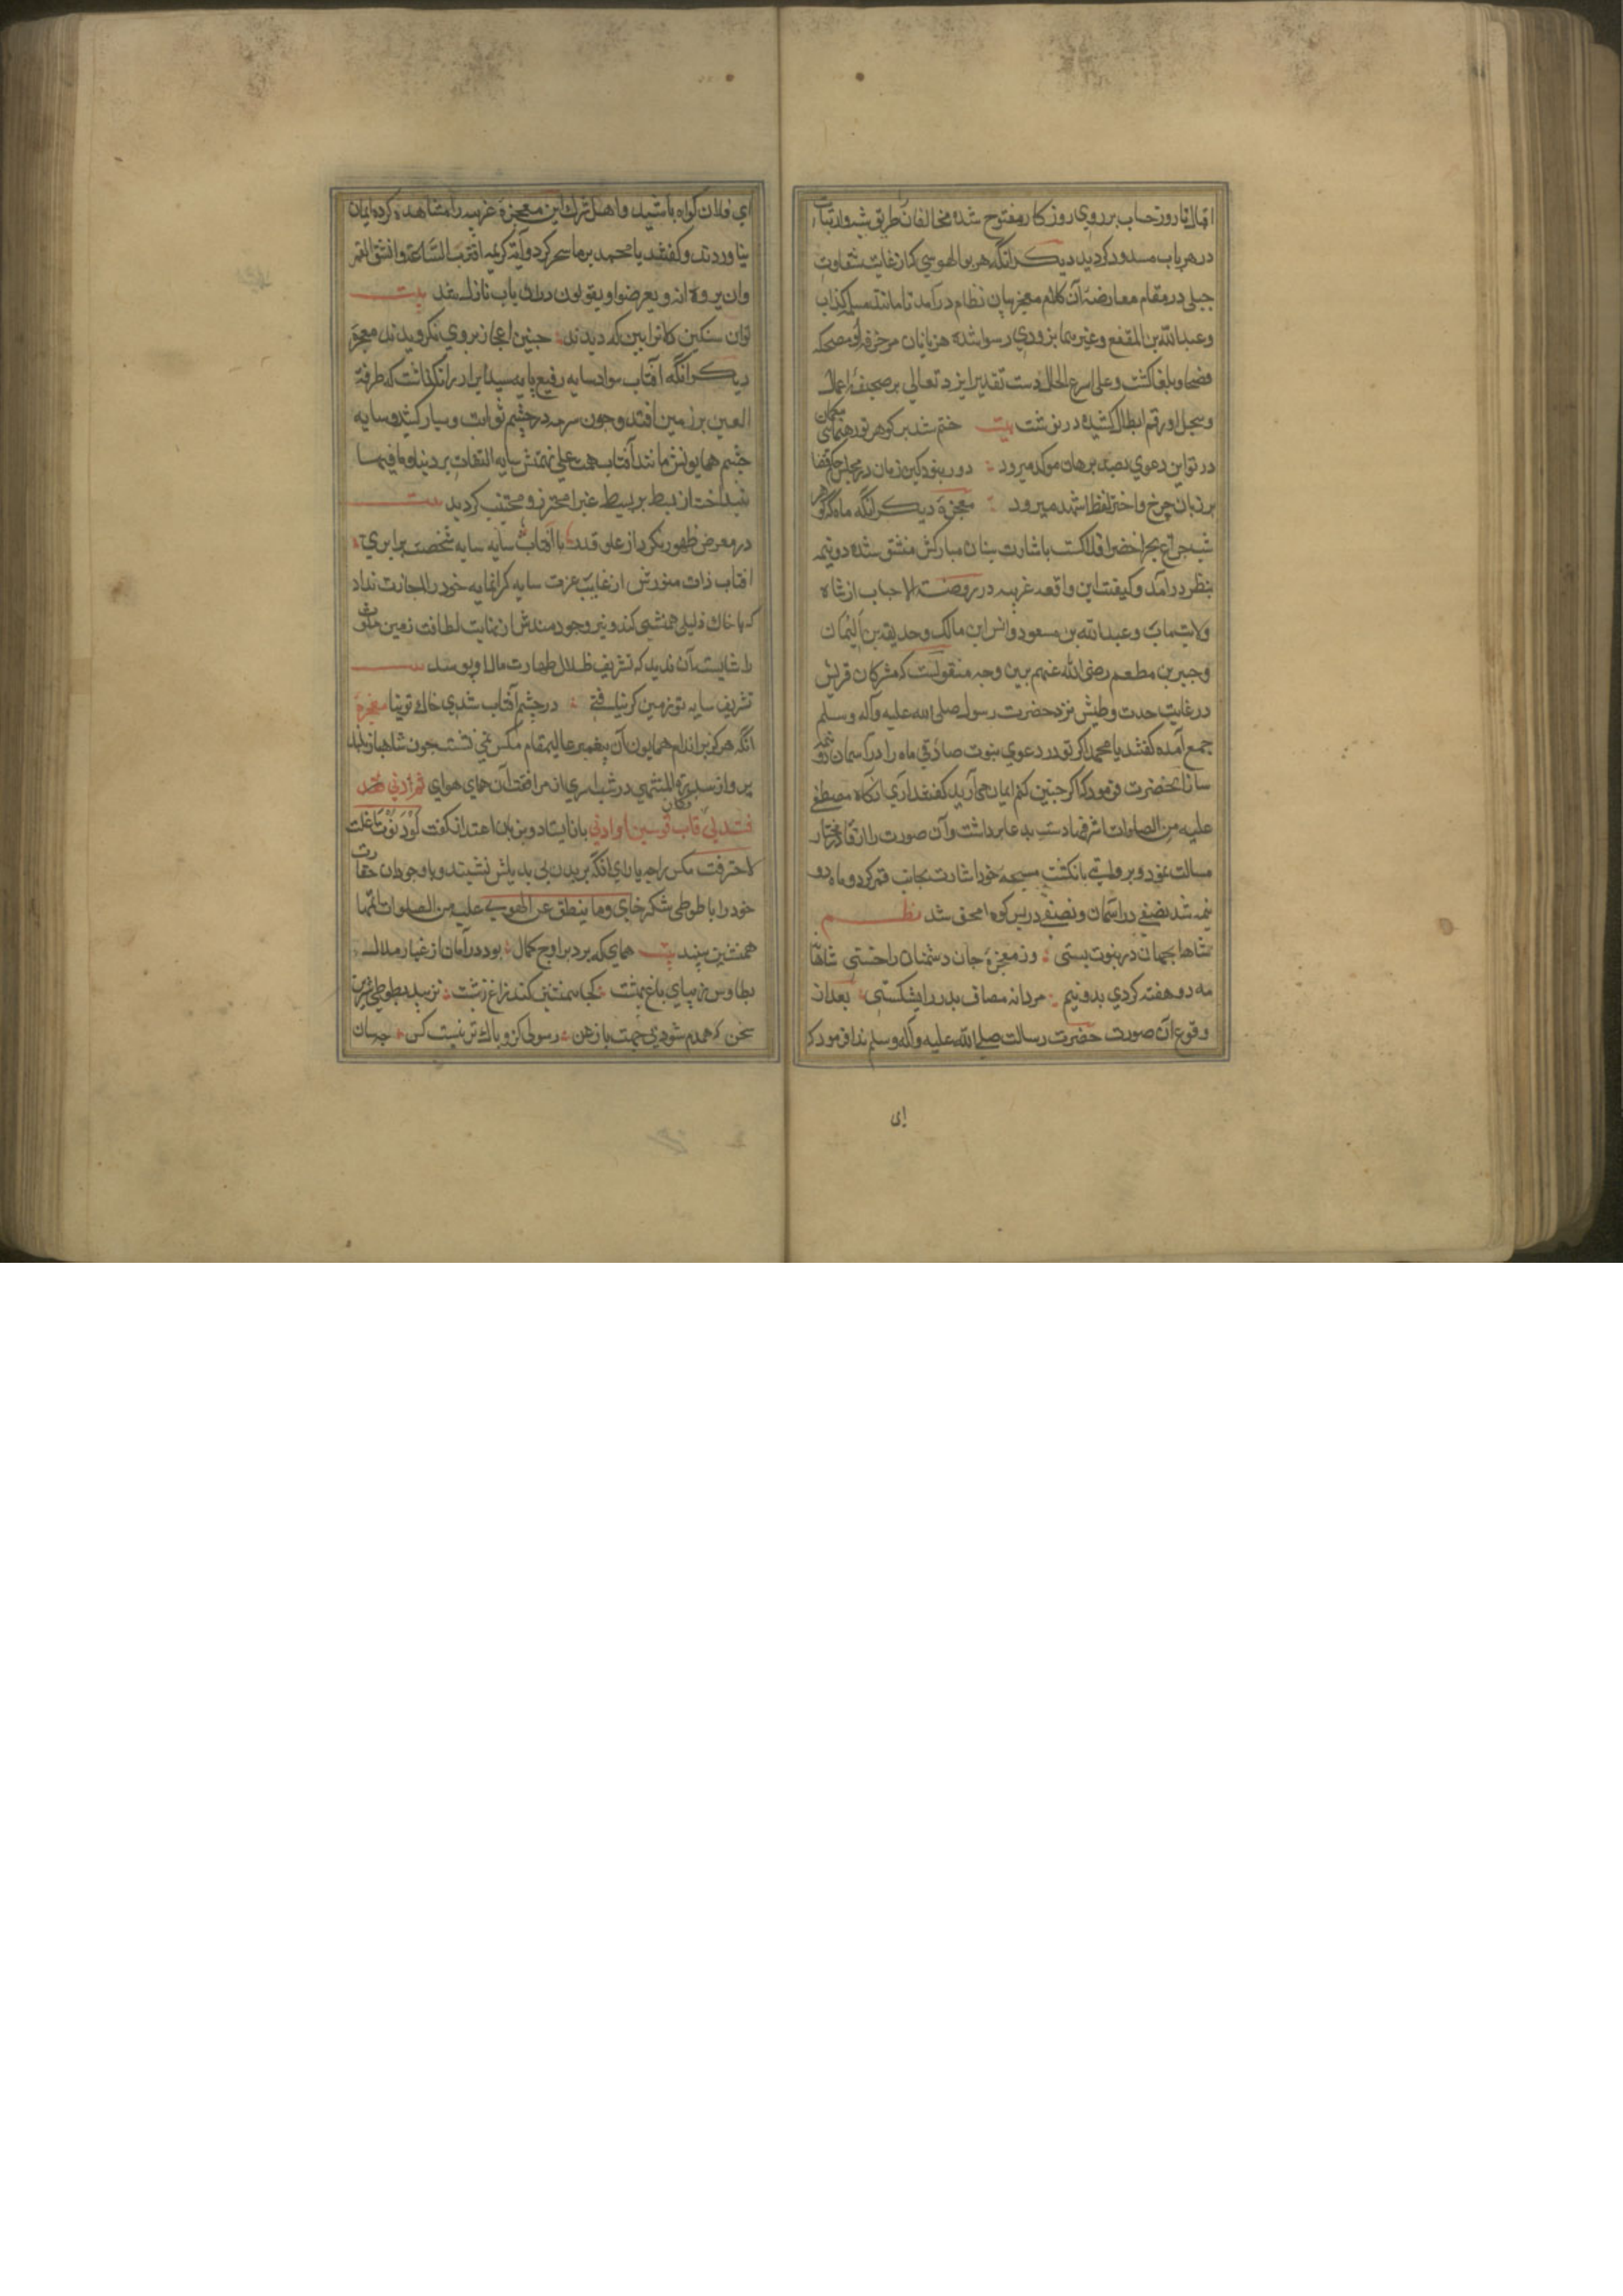 اقبال تا روز حساب بر روی روزکار مفتوح شده مخالفانرا طریق شبه و ارتیاب
در هر باب مسدود کردید دیکر انکه هر بوالهوسی که از غایت شقاوت
جبلی در مقام معارضه آن کلام معجز بیان نظام درآمد تا مانند مسیلمه کذاب
وعبدالله بن المقفع وغیرهما بزودی رسوا شده هزیانان مزخرف او مضحکه
فصحا و بلغا کشت و علی اسرع الحال دست تقدیر ایزد تعالی بر صحیفه اعمال
وسجل او رقم ابطال کشیده در نوشت بیت ختم شد بر کوهر تو رهنمایی
در تو این دعوی بصد برهان موکد میرود دور نبود کین زمان در مجلس حکم قضا
بر زبان چرخ و اختر لفظ اشهد میرود معجزه دیکر انکه ماه که کوهر
شب چراغ بحر اخضر افلاکست باشارت بنان مبارکش منشق شده دو نیمه
بنظر درآمد و کیفیت این واقعه غریبه در روضة الاحباب از شاه
ولایتمآب وعبدالله بن مسعود وانس ابن مالک وحذیفه بن الیمان
وجبیر بن مطعم رضی الله عنهم برین وجه منقولست که مشرکان قریش
در غایت حدت وطیش نزد حضرت رسول صلی الله علیه وآله وسلم
جمع آمده کفتند یا محمد اکر تو در دعوی نبوت صادقی ماه را در آسمان دو نیمه
ساز آنحضرت فرمود که اکر چنین کنم ایمان می آرید کفتند آری آنکاه مصطفی
علیه من الصلوات اشرفها دست بدعا برداشت وآن صورت را از قادر مختار
مسالت نمود و بروایتی بانکشت مسبحه خود اشارت بجانب قمر کرد و ماه دو
نیمه شد نصفی در آسمان و نصفی در پس کوه مخفی شد نظم
شاها بجهان در نبوت بستی وز معجزه جان دشمنان را خستی شاها
مه دو هفته کردی بدو نیم مردانه مصاف بدر را بشکستی بعد از
وقوع آن صورت حضرت رسالت صلی الله علیه وآله وسلم ندا فرمود که
ای
ای فلان کواه باشید و اهل شرک این معجزه غریبه را مشاهده کرده ایمان
نیاوردند و کفتند یا محمد بر ما سحر کرد و آیه کریمه اقتربت الساعة وانشق القمر
وان یروا آیة ویعرضوا ویقولون دران باب نازل شد بیت
توان سنکین کانرا بین که دیدند چنین اعجاز بروی نکرویدند معجزه
دیکر انکه آفتاب سواد سایه رفیع پایه سید ابرار را نکذاشت که طرفة
العین بر زمین افتد و چون سرمه در چشم ثوابت و سیار کشید و سایه
چشم همایونش مانند آفتاب همت علی نهمتش سایه التفات بر دنیا و ما فیها
نینداخت از بسط بر بسیط غبرا محترز و مجتنب کردید بیت
در معرض ظهور نکرد از علو قدر با آفتاب سایه سایه شخصت برابری
افتاب ذات منورش از غایت عزت سایه کرانمایه خود را اجازت نداد
که با خاک ذلیل همنشینی کند و نیر وجودمندش از نهایت لطافت زمین
را شایسته آن ندید که تشریف ظلال طهارت مآل او پوسد بیت
تشریف سایه تو زمین کر نیافتی در چشم آفتاب شدی خاک توتیا معجزه
انکه هرکز بر اندام همایون آن پیغمبر عالیمقام مکس نمی نشست چون شاهباز بلند
پرواز سدرة المنتهی در شب اسری از مرافقت آن همای هوای ثم دنی
فتدلی فکان قاب قوسین او ادنی باز ایستاد و بزبان اعتذار کفت لو دنوت انملة
لاحترقت مکس را چه یارای آنکه بر بدن بی بدیلش نشیند و با وجود آن حقارت
خود را با طوطی شکرخای وما ینطق عن الهوی علیه من الصلوات اتمها
همنشین بیند بیت همای که پرد بر اوج کمال بود در امان از غبار ملال
بطاوس زیبای باغ بهشت کجا همنشینی کند زاغ زشت نزیبد بطوطی شیرین
سخن که همدم شود رسولی کزو پاکتر نیست کس چسان